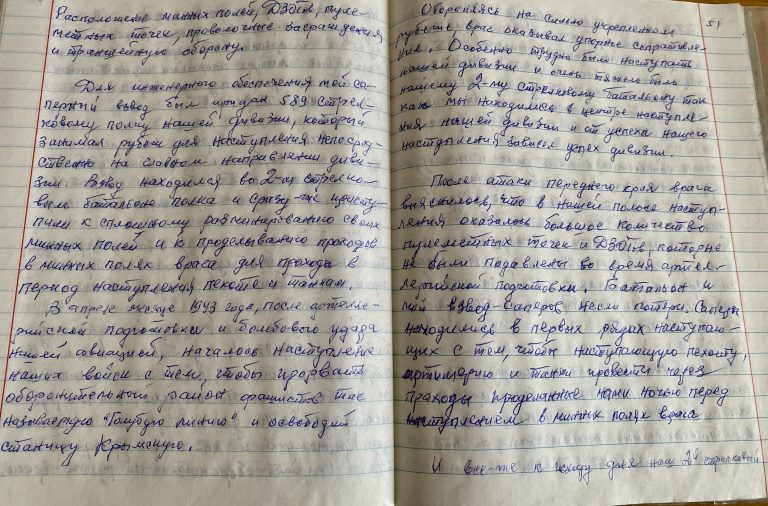 Расположение минных полей, ДЗОТов, пуле-
метных точек, проволочные заграждения
и траншейную оборону.
Для инженерного обеспечения мой са-
перный взвод был придан 589 стрел-
ковому полку нашей дивизии, который
занимал рубеж для наступления непосред-
ственно на главном направлении диви-
зии. Взвод находился во 2-ом стрелко-
вом батальоне полка и сразу-же присту-
пили к сплошному разминированию своих
минных полей и к проделыванию проходов
в минных полях врага для прохода в
период наступления пехоте и танкам.
В апреле месяце 1943 года, после артилле-
рийской подготовки и бомбового удара
нашей авиацией, началось наступление
наших войск с тем, чтобы прорвать
оборонительный район фашистов так
называемую "Голубую линию" и освободить
станицу Крымскую.
51
Обороняясь на сильно укрепленном
рубеже, враг оказывал упорное сопротивле-
ние. Особенно трудно было наступать
нашей дивизии и очень тяжело было
нашему 2-му стрелковому батальону так
как мы находились в центре наступле-
ния нашей дивизии и от успеха нашего
наступления зависел успех дивизии.
После атаки переднего края врага
выяснилось, что в нашей полосе насту-
пления оказалось большое количество
пулеметных точек и ДЗОТов, которые
не были подавлены во время артил-
лерийской подготовки. Батальон и
мой взвод саперов несли потери. Саперы
находились в первых рядах наступаю-
щих с тем, чтобы наступающую пехоту,
артиллерию и танки провести через
проходы проделанные нами ночью перед
наступлением в минных полях врага.
И все-же к исходу дня наш 2й стрелковый